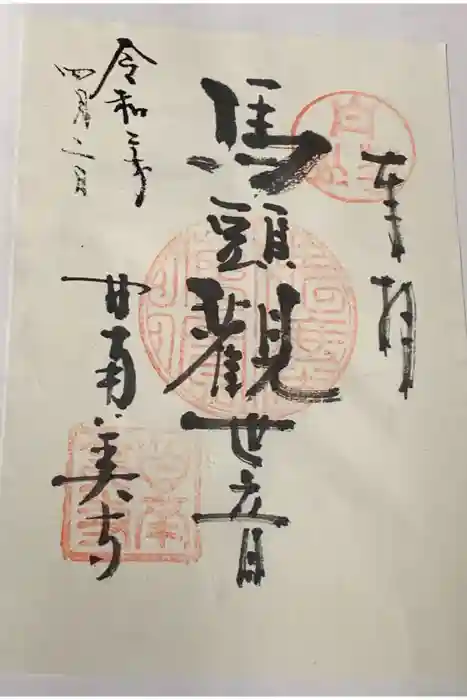 奉拝
馬頭觀世音
令和二年
四月二日
甘南美寺